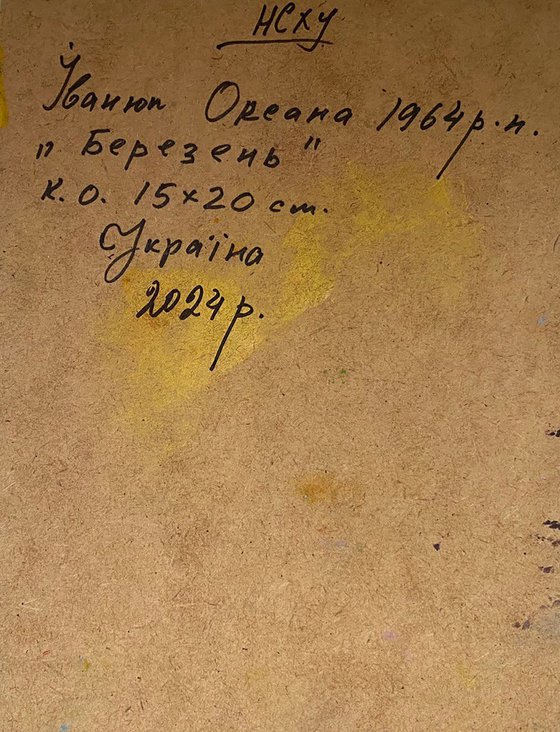 НСХУ
Іванюк Оксана 1964р.н.
„ Березень "
к.о. 15×20 см.
Україна
2024р.